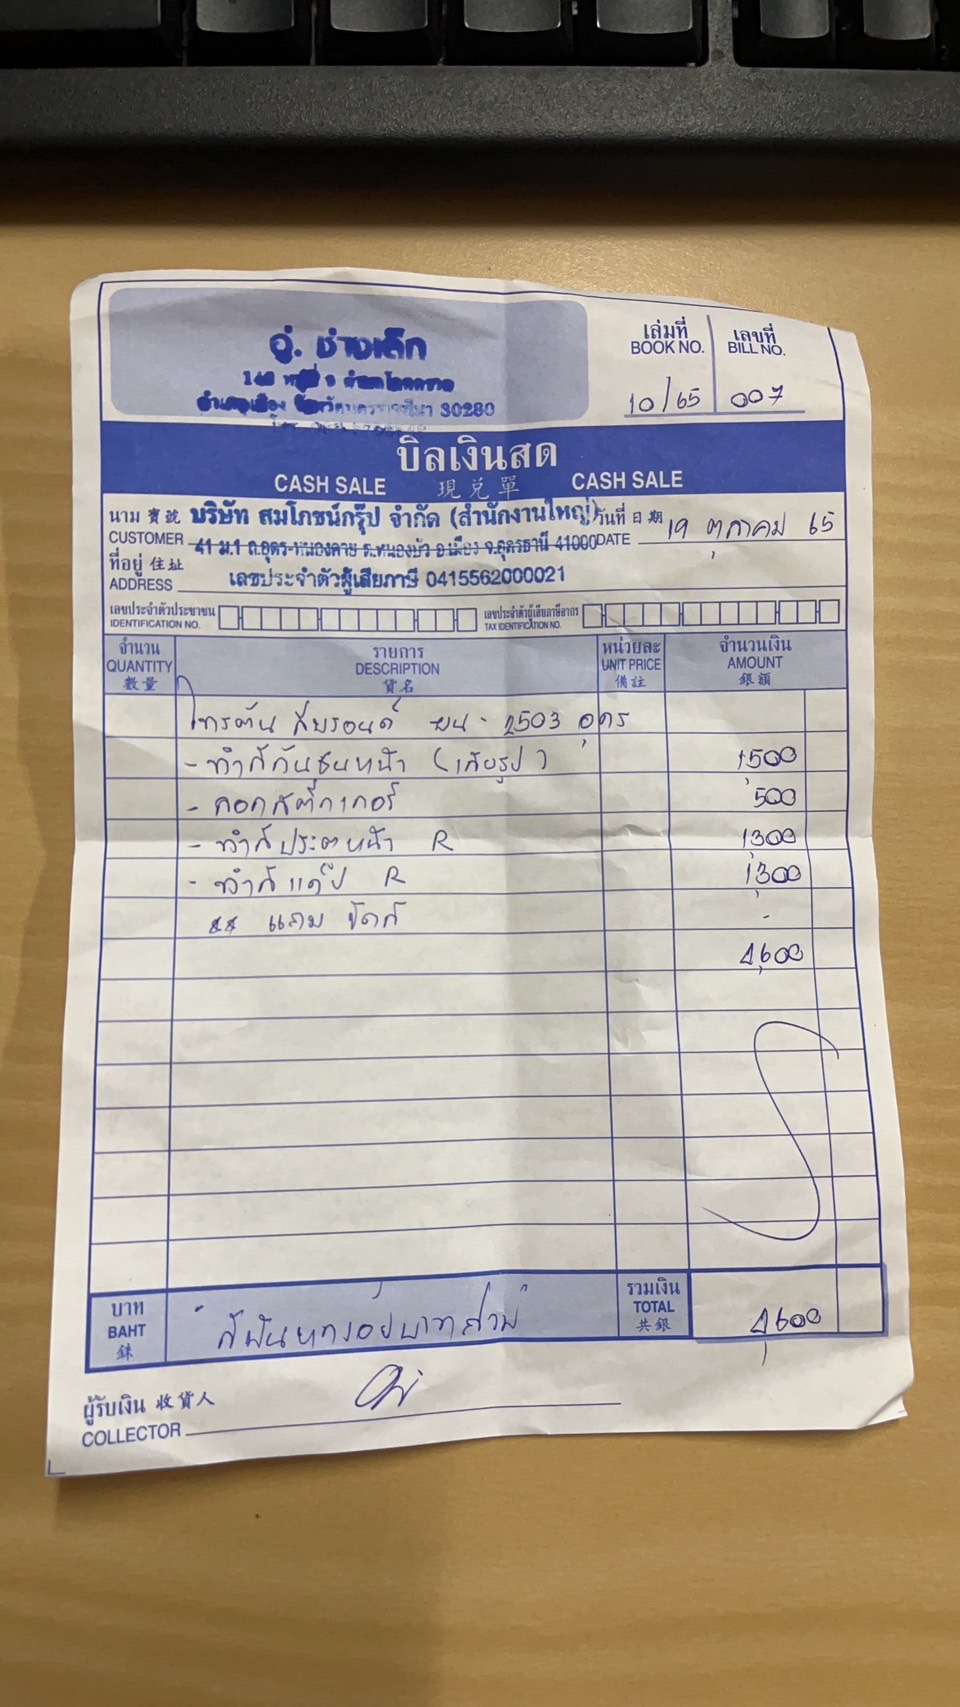 อู่. ช่างเด็ก
อำเภอเมือง จังหวัดนครราชสีมา 30280
เล่มที่ เลขที่
BOOK NO. BILL NO.
10/65 007
บิลเงินสด
CASH SALE 現兌單 CASH SALE
นาม 寶號 บริษัท สมโภชน์กรุ๊ป จำกัด (สำนักงานใหญ่) วันที่ 日期 19 ตุลาคม 65
CUSTOMER 41 ม.1 ถ.อุดร-หนองคาย ต.หนองบัว อ.เมือง จ.อุดรธานี 41000 DATE
ที่อยู่ 住址
ADDRESS เลขประจำตัวผู้เสียภาษี 0415562000021
เลขประจำตัวประชาชน เลขประจำตัวผู้เสียภาษีอากร
IDENTIFICATION NO. TAX IDENTIFICATION NO.
จำนวน รายการ หน่วยละ จำนวนเงิน
QUANTITY DESCRIPTION UNIT PRICE AMOUNT
數量 貨名 備註 銀額
ไทรตัน สีบรอนด์ ผน - 2503 อุดร
- ทำสีกันชนหน้า (เสียรูป) 1,500
- ลอกสติ๊กเกอร์ 500
- ทำสีประตูหน้า R 1,300
- ทำสีแค๊ป R 1,300
** แถม ขัดสี -
4,600
บาท รวมเงิน
BAHT สี่พันหกร้อยบาทถ้วน TOTAL 4,600
銖 共銀
ผู้รับเงิน 收貨人
COLLECTOR